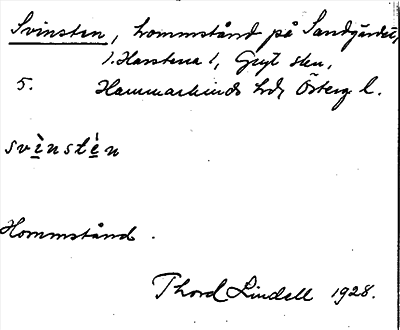 Svinsten, hommstånd på Sandgärdet,
1. Harstena 1, Gryt skn,
5. Hammarkinds hd, Österg l.
svìnstè̱n
Hommstånd.
Thord Lindell 1928.